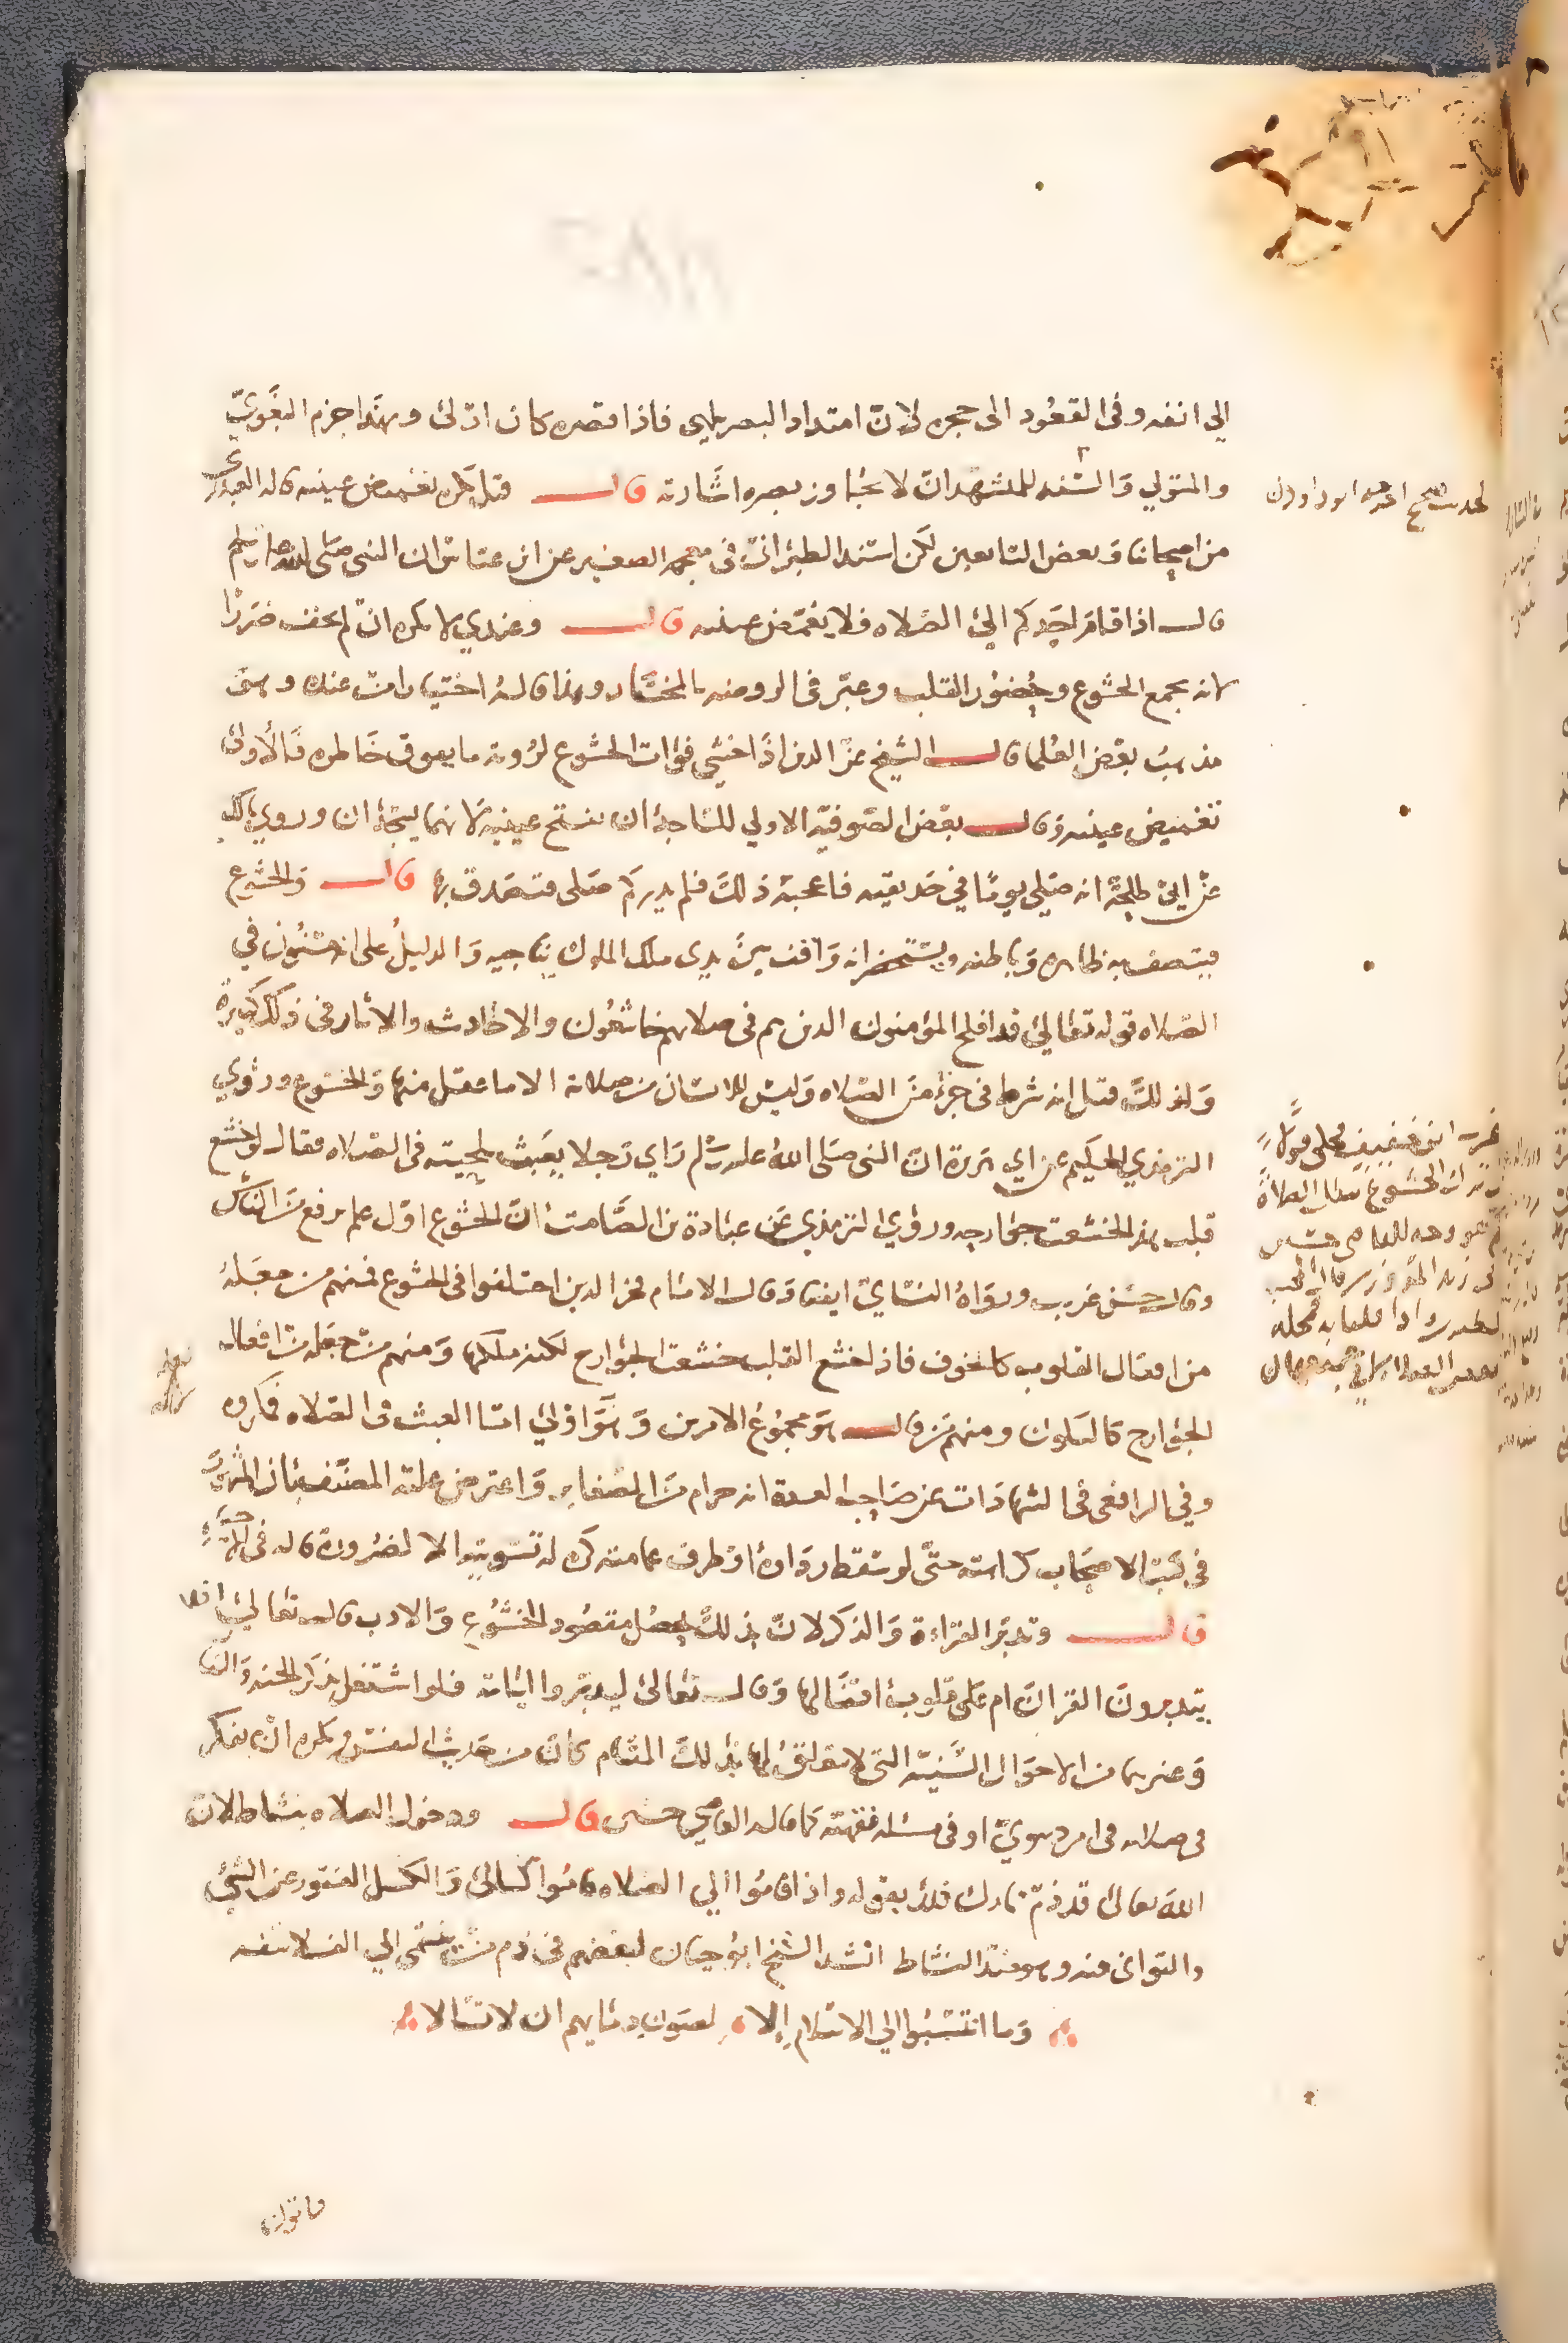 الي انفه وفي القعود الى حجره لان امتداد البصر يلهى فاذا قصره كان اولى وبهذا جزم البغوي
والمتولي والسنه للمتشهد ان لا يجاوز بصره اشارته قال قيل يكره تغميض عينيه قاله العبدري
من اصحابنا وبعض التابعين لكن اسند الطبراني في معجمه الصغير عن ابن عباس ان النبي صلى الله عليه وسلم
قال اذا قام احدكم الي الصلاه فلا يغمض عينيه قال وعندي لا يكره ان لم يخف ضررا
لانه يجمع الخشوع وحضور القلب وعبر في الروضه بالمختار وهذا قاله اختيارا من عنده وهو
مذهب بعض العلما قال الشيخ عز الدين اذا خشي فوات الخشوع لرؤية ما يعوق خاطره فالأولى
تغميض عينيه وقال بعض الصوفيه الاولي للساجد ان يفتح عينيه لانهما يسجدان وروي مالك
عن ابي طلحة انه صلي يوما في حديقته فاعجبه ذلك فلم يدر كم صلى فتصدق بها قال والخشوع
فيتصف به ظاهره وباطنه ويستحضر انه واقف بين يدي ملك الملوك يناجيه والدليل على انه مسنون في
الصلاه قوله تعالي قد افلح المؤمنون الذين هم في صلاتهم خاشعون والاحاديث والاثار في ذلك كثيرة
ولذلك قيل انه شرط في جزء من الصلاه وليس للانسان من صلاته الا ما عقل منها والخشوع وروي
الترمذي الحكيم عن ابي هريرة ان النبي صلى الله عليه وسلم راي رجلا يعبث بلحيته في الصلاه فقال لو خشع
قلب هذا لخشعت جوارحه وروي الترمذي عن عبادة بن الصامت ان الخشوع اول علم يرفع من الناس
وقال حسن غريب ورواه النسائي ايضا وقال الامام فخر الدين اختلفوا في الخشوع فمنهم من جعله
من افعال القلوب كالخوف فاذا خشع القلب خشعت الجوارح لكنه ملكها ومنهم من جعله من افعال
الجوارح كالسكون ومنهم من قال هو مجموع الامرين وهو اولي اما العبث في الصلاه فمكروه
وفي الرافعي في الشهادات عن صاحب العدة انه حرام من الصغاير واعترض عليه المصنف بان المشهور
في كتب الاصحاب كراهته حتى لو سقط رداؤه او طرف عمامته كره له تسويته الا لضرورة قاله في الاحياء
قال وتدبر القراءة والذكر لان بذلك يحصل مقصود الخشوع والادب قال تعالي افلا
يتدبرون القران ام على قلوب اقفالها وقال تعالى ليدبروا اياته فلو اشتغل بذكر الجنه والنار
وغيرهما من الاحوال السنية التي لا تعلق لها بذلك المقام كان من حديث النفس ويكره ان يفكر
في صلاته في امر دنيوي او في مسئله فقهيه كما قاله القاضي حسين قال ودخول الصلاه بنشاط لان
الله تعالى قد ذم تارك ذلك بقوله واذا قاموا الي الصلاه قاموا كسالى والكسل الفتور عن الشي
والتوانى فيه وهو ضد النشاط انشد الشيخ ابو حيان لبعضهم في ذم من ينتمي الي الفلاسفه
وما انتسبوا الي الاسلام الا لصون دمائهم ان لا تسالا